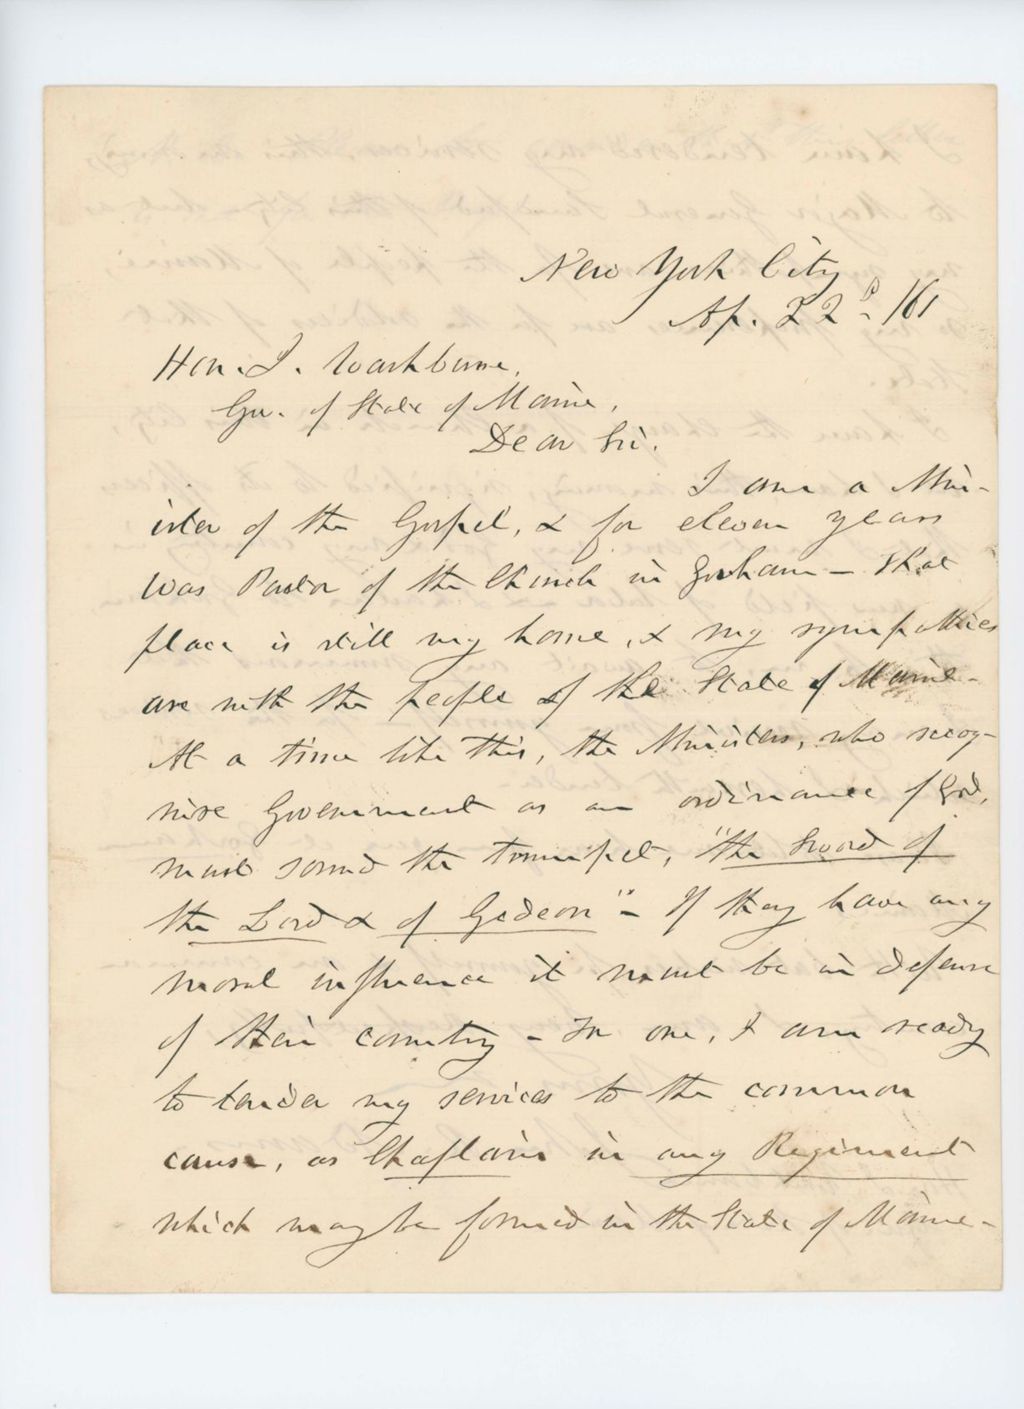 New York City
Ap. 22d /61
Hon. I. Washburne,
Gov. of State of Maine,
Dear Sir.
I am a Min-
ister of the Gospel, & for eleven years
was Pastor of the Church in Gorham - that
place is still my home, & my sympathies
are with the people of the State of Maine -
At a time like this, the Ministers, who recog-
nise Government as an ordinance of God,
must sound the trumpet, "the Sword of
the Lord & of Gideon" - If they have any
moral influence it must be in defense
of their country - For one, I am ready
to tender my services to the common
cause, as Chaplain in any Regiment
which may be formed in the State of Maine -